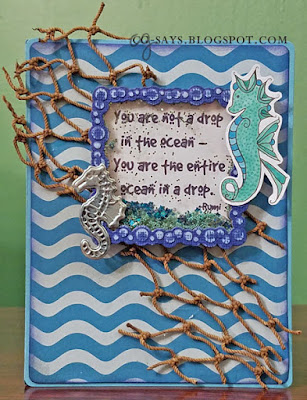 CG-SAYS.BLOGSPOT.COM
You are not a drop
in the ocean –
You are the entire
ocean in a drop.
-Rumi